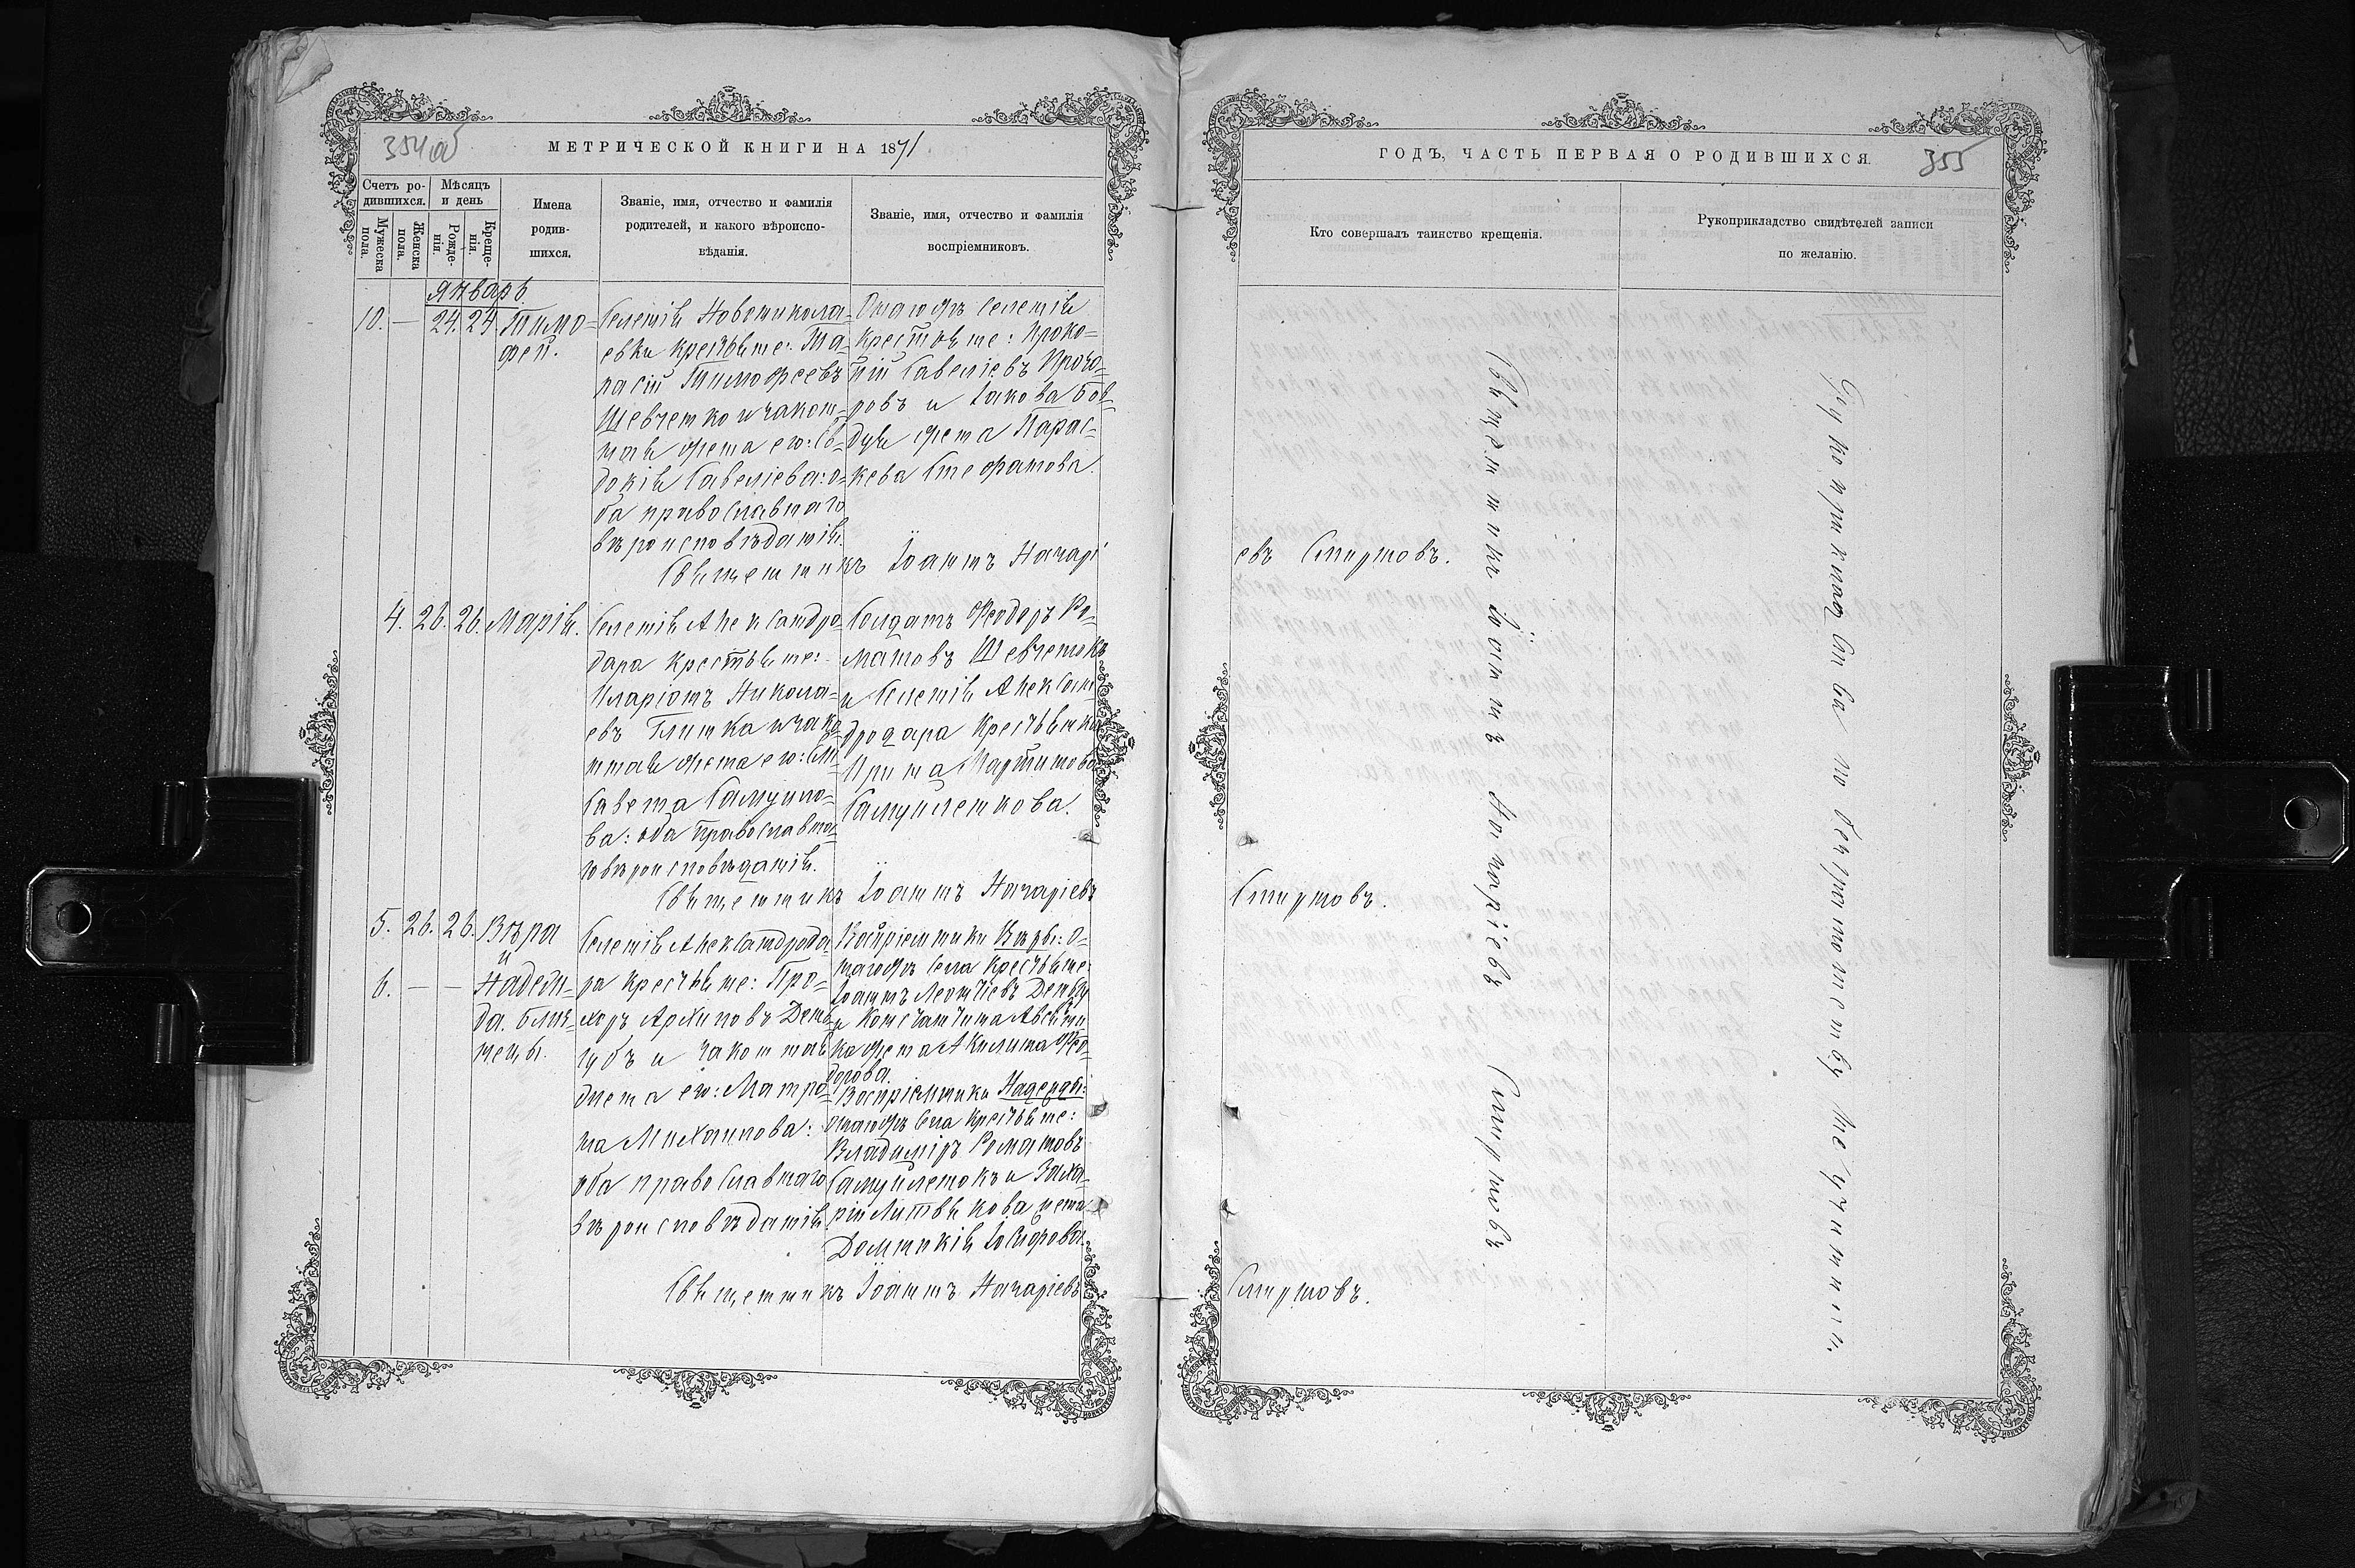 354 об
МЕТРИЧЕСКОЙ КНИГИ НА 1871
Счетъ ро-
дившихся.
Мѣсяцъ
и день
Мужеска
пола.
Женска
пола.
Рожде-
нія.
Креще-
нія.
Имена
родив-
шихся.
Званіе, имя, отчество и фамилія
родителей, и какого вѣроиспо-
вѣданія.
Званіе, имя, отчество и фамилія
воспріемниковъ.
Январь
10. — 24. 24. Тимо-
фей.
Селенія Новоникола-
евки крестьяне: Та-
расій Тимофеевъ
Шевченко и закон-
ная жена его: Ев-
докія Савеліева: о-
ба православнаго
вѣроисповѣданія.
Онагожъ селенія
крестьяне: Проко-
пій Савеліевъ Прохо-
ровъ и Іакова Бов-
дуя жена Парас-
кева Стефанова.
Священникъ Іоаннъ Назарі
4. 26. 26. Марія.
Селенія Александро-
дара крестьяне:
Иларіонъ Никола-
евъ Глинка и зако-
нная жена его: Ели-
савета Самуило-
ва: оба православна-
го вѣроисповѣданія.
Солдатъ Феодоръ Ро-
мановъ Шевченокъ
и Селенія Алексан-
дродара крестьянка
Ирина Мартинова
Самуиленкова.
Священникъ Іоаннъ Назаріевъ
5. 26. 26. Вѣра
и
6. — — Надеж-
да. близ-
нецы.
Селенія Александрода-
ра крестьяне: Про-
хоръ Архиповъ
и законная
жена его: Матро-
на Михаилова:
оба православнаго
вѣроисповѣданія.
Вѣры: о-
нагожъ села крестьяне:
Іоаннъ Леонтіевъ
и Константина
жена Акилина Фео-
дорова.
Воспріемники Надежды:
онагожъ села крестьяне:
Владиміръ Романовъ
Самуйленокъ и Заха-
рія Литвякова жена
Домникія Іосифова.
Священникъ Іоаннъ Назаріевъ
355
ГОДЪ, ЧАСТЬ ПЕРВАЯ О РОДИВШИХСЯ.
Кто совершалъ таинство крещенія.
Рукоприкладство свидѣтелей записи
по желанію.
евъ Смирновъ.
Смирновъ.
Смирновъ.
Священникъ Іоаннъ Назаріевъ Смирновъ
Рукоприкладства по безграмотству не учинили.